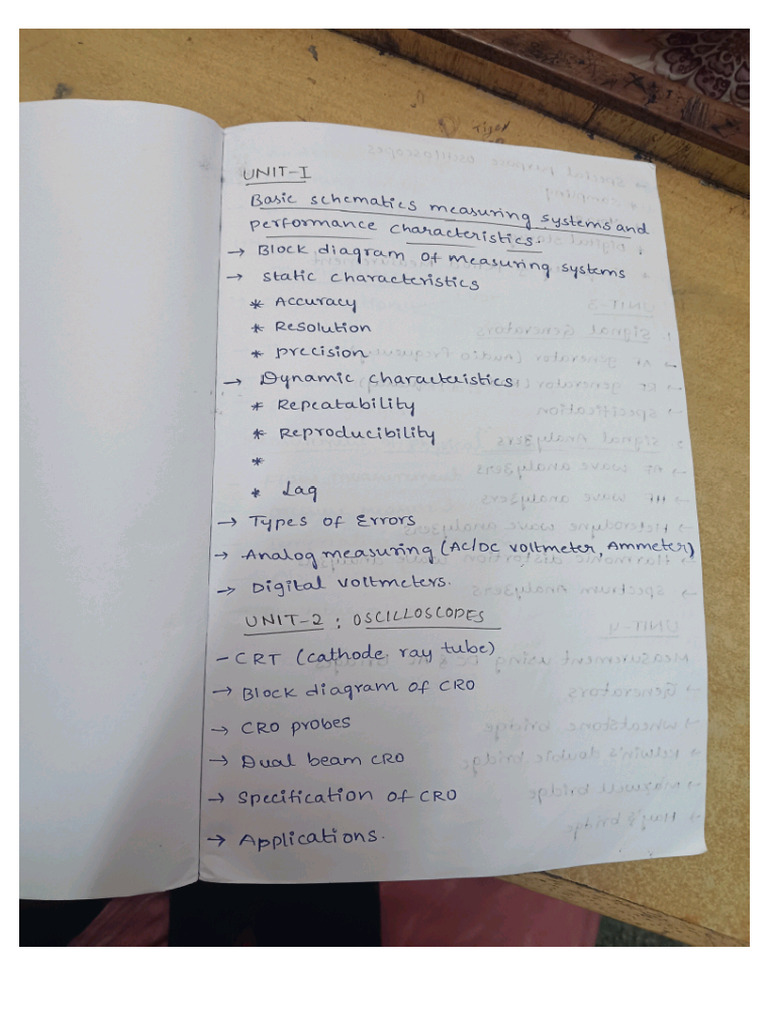 UNIT-I
Basic schematics measuring systems and
performance characteristics.
→ Block diagram of measuring systems
→ static characteristics
* Accuracy
* Resolution
* precision
→ Dynamic characteristics
* Repeatability
* Reproducibility
*
* Lag
→ Types of Errors
→ Analog measuring (AC/DC voltmeter, Ammeter)
→ Digital voltmeters.
UNIT-2 : OSCILLOSCOPES
- CRT (cathode ray tube)
→ Block diagram of CRO
→ CRO probes
→ Dual beam CRO
→ Specification of CRO
→ Applications.